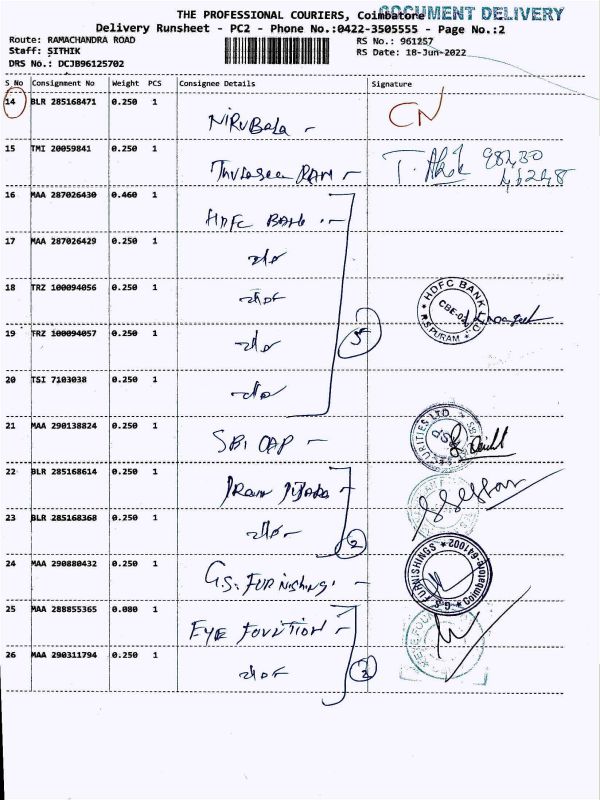 THE PROFESSIONAL COURIERS, Coimbatore
DOCUMENT DELIVERY
Delivery Runsheet - PC2 - Phone No.:0422-3505555 - Page No.:2
Route: RAMACHANDRA ROAD
RS No.: 961257
Staff: SITHIK
RS Date: 18-Jun-2022
DRS No.: DCJB96125702
S No Consignment No Weight PCS Consignee Details Signature
14 BLR 285168471 0.250 1 NiRuBala CN
15 TMI 20059841 0.250 1
16 MAA 287026430 0.460 1 HDFC BANK
17 MAA 287026429 0.250 1
18 TRZ 100094056 0.250 1
HDFC BANK
R.S PURAM
19 TRZ 100094057 0.250 1
5
20 TSI 7103038 0.250 1
21 MAA 290138824 0.250 1 SBI CAP
22 BLR 285168614 0.250 1
23 BLR 285168368 0.250 1
2
24 MAA 290880432 0.250 1 G.S. FURNISHING.
G S FURNISHINGS * Coimbatore-641002 *
25 MAA 288855365 0.080 1 EYE FOUNTION
26 MAA 290311794 0.250 1
2